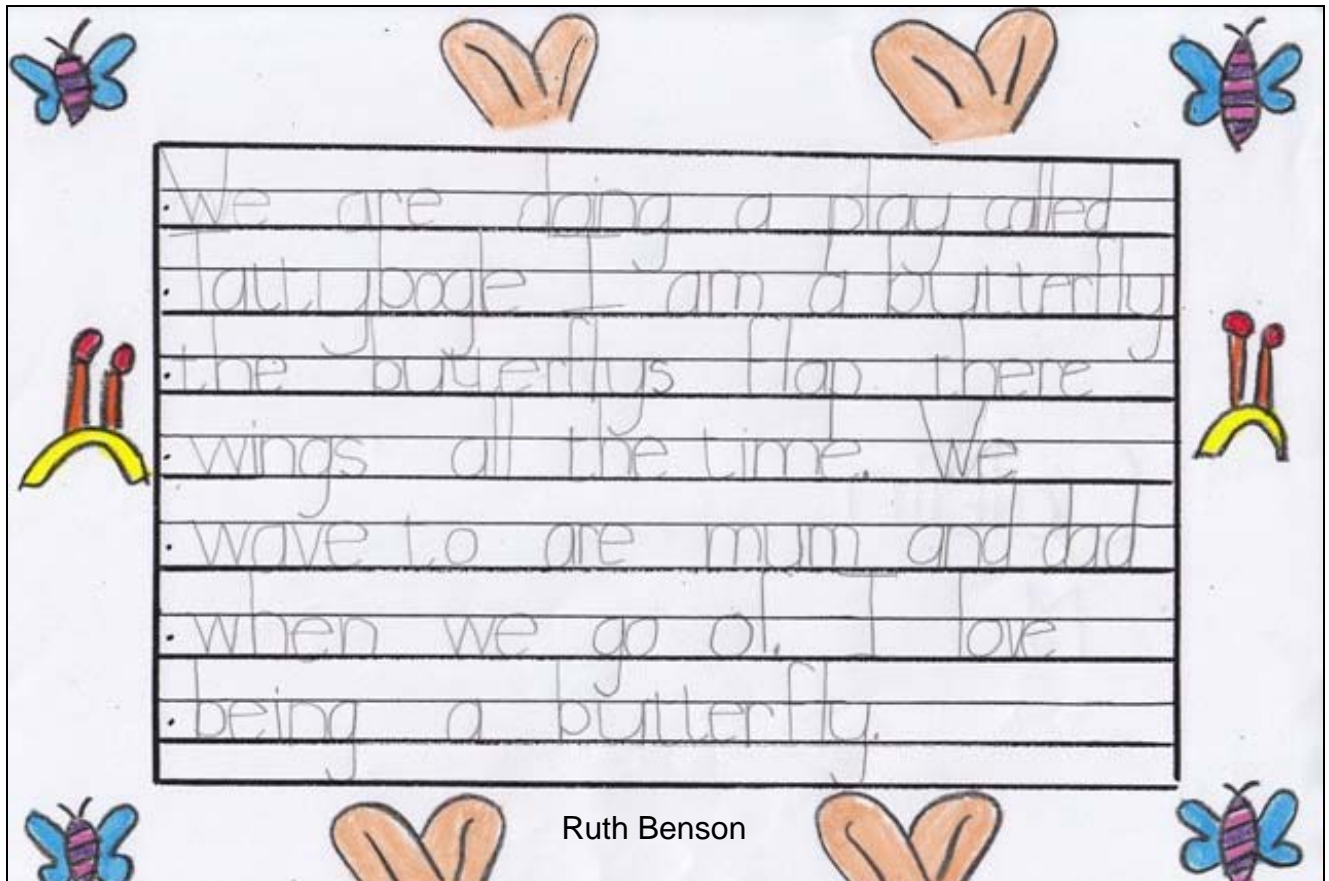 We are doing a play called
Tattybogle I am a butterfly
the butterflys flap there
wings all the time. We
wave to are mum and dad
when we go of. I love
being a butterfly.
Ruth Benson